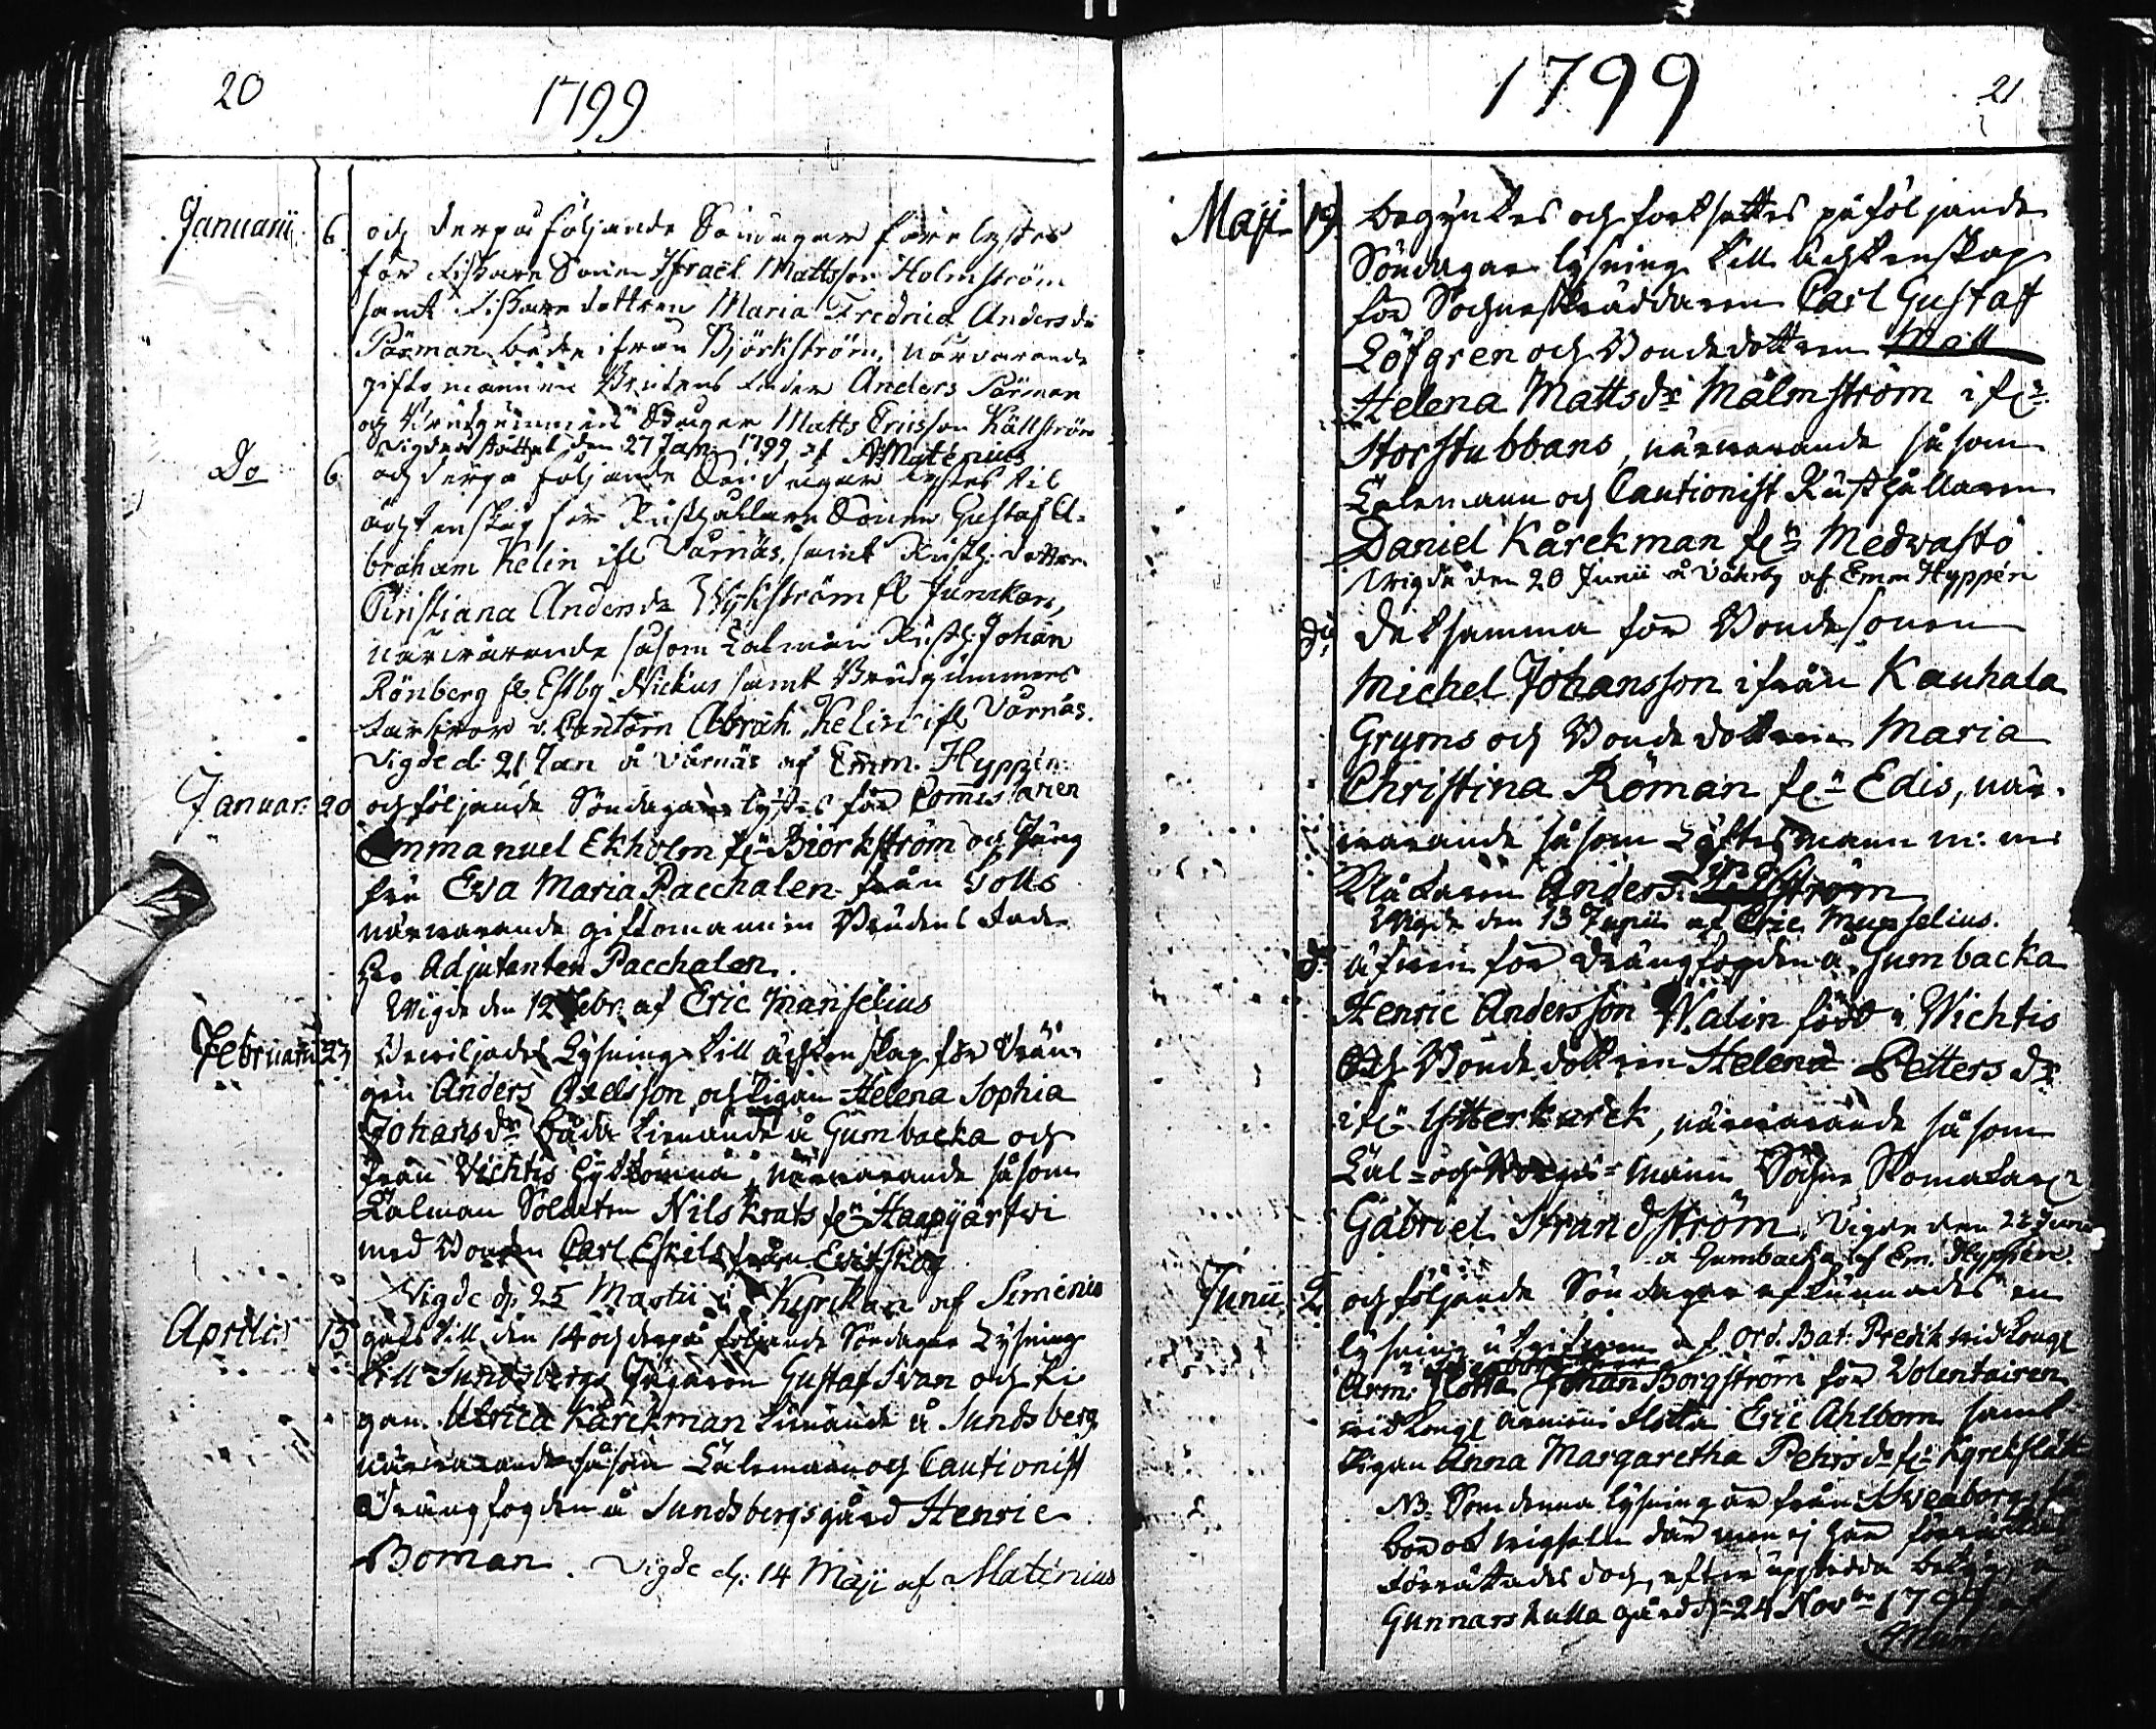 20
1799
Januarii 6 och derpå följande Söndagar före lystes
för Fiskare Sonen Israël Mattsson Holmström
samt Fiskare dottren Maria Fredrica Anders dr
Pärman både ifrån Björkström, närvarande
giftomannen Brudens Fader Anders Pärman
och Brudgummens Swåger Matts Ericsson Källström
Vigde den 27 Jan: 1799 af A Maténius
Do 6 och derpå följande Söndagar lystes til
ächtenskap för Rusthållare Sonen Gustaf A-
braham Kelin ifr Vårnäs, samt Rusth: dottren
Christiana Anders dr Wykström fr Junckars,
närwarande såsom Talman Rusth: Johan
Rönberg fr Estby Nickus samt Brudgummens
Farbror v. Cantorn Abrah. Kelin ifr Vårnäs.
Vigde d: 21 Jan å Vårnäs af Emm. Hyppén.
Januar: 20 och följande Söndagar lystes för Commissarien
Emmanuel Ekholm frn Biörkström och Jung
fru Eva Maria Pacchalen från Volls
närwarande giftomannen Brudens Fader
Hr Adjutanten Pacchalen.
Wigde den 12 Febr: af Eric Manselius
Februarii 23 Bewiljades Lysning till ächtenskap för Drän-
gen Anders Axelsson och Pigan Helena Sophia
Johans dr både tienande å Gumbacka och
från Vichtis hytkomna, närwarande såsom
Talman Soldaten Nils Krats frn Haapjärfwi
med Bonden Carl Eskils från Evitskog
Vigde d: 25 Martii i Kyrckan af Siménius
Aprilis 13 gafs till den 14 och derpå följande Söndagar Lysning
till Sundsbergs Jägaren Gustaf Svan och Pi
gan Ulrica Kårckman tienande å Sundsberg
närwarande såsom Talemann och Cautionist
Drängfogden å Sundsbergs gård Henric
Boman. Vigde d: 14 Maji af Maténius
1799
21
Maji 19 begyntes och fortsattes påföljande
Söndagar lysning till ächtenskap
för Sockneskräddaren Carl Gustaf
Löfgren och Bondedottren Mall
Helena Matts dr Malmström ifrn
Storstubbans, närwarande såsom
Talemann och Cautionist Rusthållaren
Daniel Kårckman frn Medwastö.
Wigde den 20 Junii å Våhrby af Emm Hyppén
do detsamma för Bondesonen
Michel Johansson ifrån Kauhala
Gryms och Bonde dottren Maria
Christina Röman frn Edis, när-
warande såsom Löftesmann m: m:
Anders ström
Wigde den 13 Junii af Eric Manselius.
do äfwen för Drängfogden å Gumbacka
Henric Andersson Walin född i Wichtis
och Bonde dottren Helena Petters dr
ifrn Ytterkurck, närwarande såsom
Tal- och Borges- mann Sockne Skomakaren
Gabriel Strandström. Vigde den 22 Junii
å Gumbacka af Em. Hyppén.
Junii 2 och följande Söndagar afkunnades en
lysning utgifwen af Ord. Bat: Predik. wid Kongl
Arm: Flotta Johan Borgström för Volentairen
wid Kongl armeens Flotta Eric Ahlbom samt
Pigan Anna Margaretha Pehrs dr frn Kyrckslätt
NB. Som denna lysning är från Sweaborg, så
bordt wigseln där men ej här förrättas
förrättades doch, efter uppwiste betyg, å
Gunnarskulla gård d: 24 Novbr 1799 af